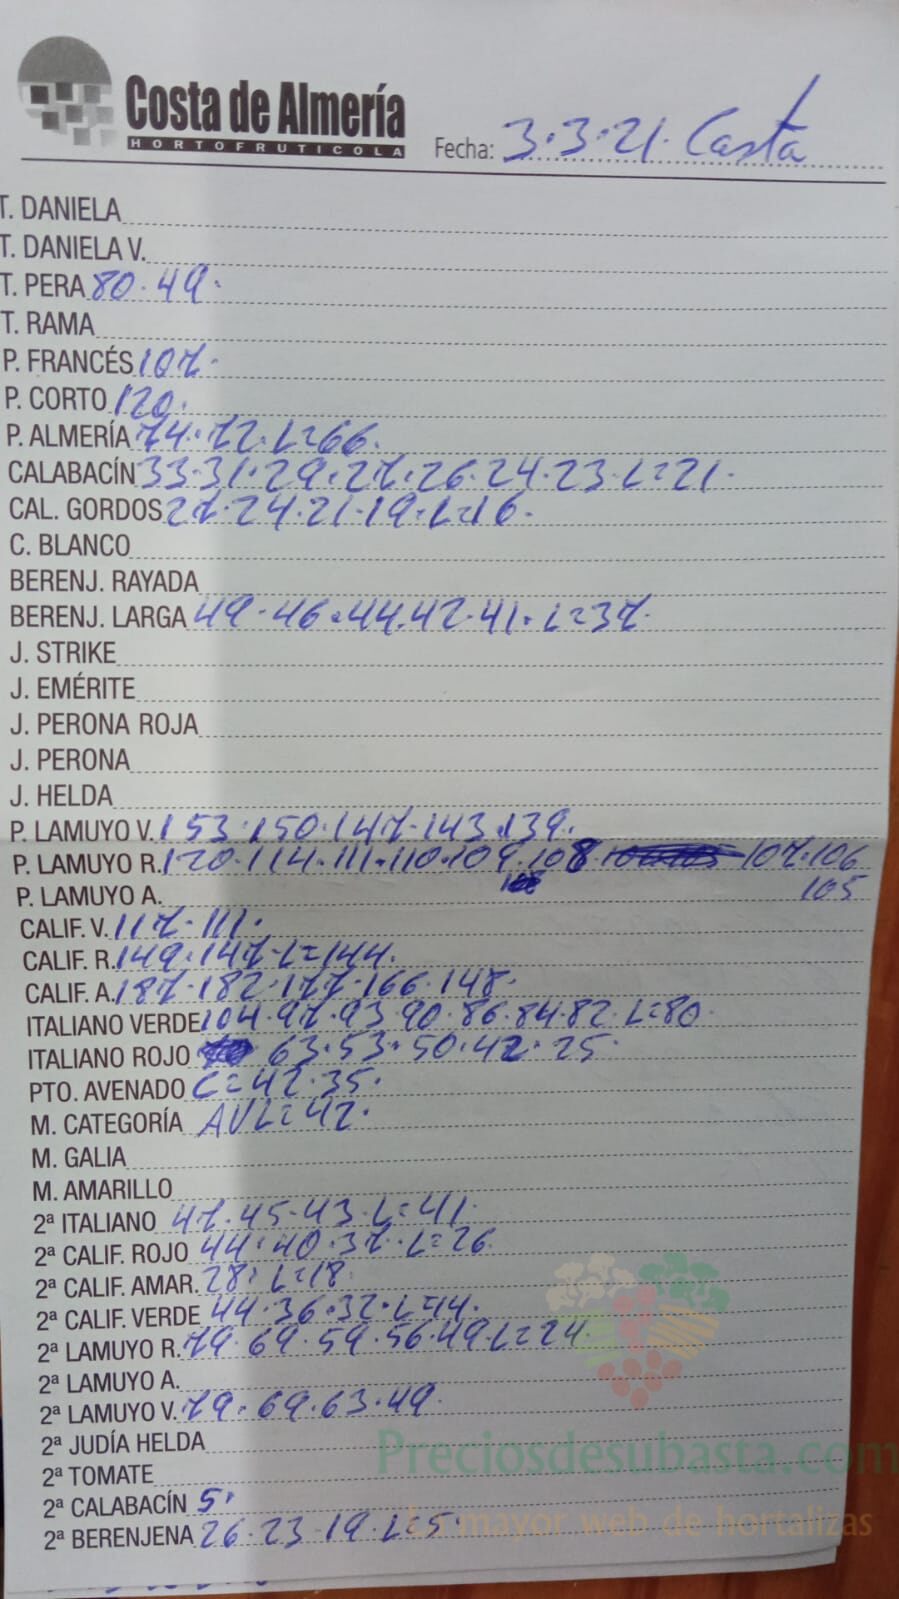 Costa de Almería
HORTOFRUTICOLA
Fecha: 3.3.21. Casta
T. DANIELA
T. DANIELA V.
T. PERA 80.49.
T. RAMA
P. FRANCÉS 107.
P. CORTO 120.
P. ALMERÍA 74.72.L=66.
CALABACÍN 33.31.29.27.26.24.23.L=21.
CAL. GORDOS 27.24.21.19.L=16.
C. BLANCO
BERENJ. RAYADA
BERENJ. LARGA 49.46.44.42.41.L=37.
J. STRIKE
J. EMÉRITE
J. PERONA ROJA
J. PERONA
J. HELDA
P. LAMUYO V. 153.150.147.143.139.
P. LAMUYO R. 120.114.111.110.109.108. 107.106
P. LAMUYO A. 105
CALIF. V. 117.111.
CALIF. R. 149.147.L=144.
CALIF. A. 187.182.177.166.148.
ITALIANO VERDE 104.97.93.90.86.84.82.L=80.
ITALIANO ROJO 63.53.50.42.25.
PTO. AVENADO C=42.35.
M. CATEGORÍA AVL=42.
M. GALIA
M. AMARILLO
2ª ITALIANO 47.45.43.L=41.
2ª CALIF. ROJO 44.40.37.L=26.
2ª CALIF. AMAR. 28. L=18.
2ª CALIF. VERDE 44.36.32.L=14.
2ª LAMUYO R. 79.69.59.56.49.L=24
2ª LAMUYO A.
2ª LAMUYO V. 79.69.63.49.
2ª JUDÍA HELDA
Preciosdesubasta.com
2ª TOMATE
2ª CALABACÍN 5.
La mayor web de hortalizas
2ª BERENJENA 26.23.19.L=5.